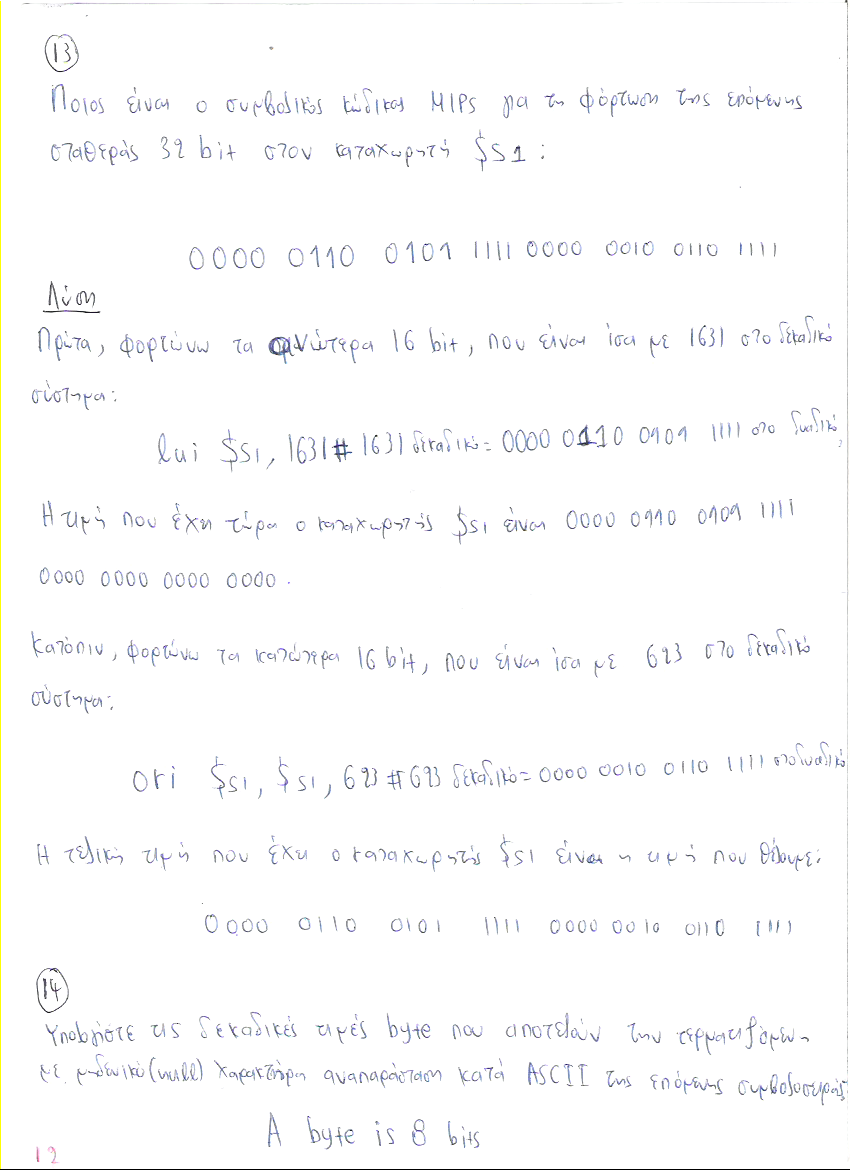 13
Ποιος είναι ο συμβολικός κώδικας MIPS για τη φόρτωση της επόμενης
σταθεράς 32 bit στον καταχωρητή $s1:
0000 0110 0101 1111 0000 0010 0110 1111
Λύση
Πρώτα, φορτώνω τα ανώτερα 16 bit, που είναι ίσα με 1631 στο δεκαδικό
σύστημα:
lui $s1, 1631 # 1631 δεκαδικό = 0000 0110 0101 1111 στο δυαδικό,
Η τιμή που έχει τώρα ο καταχωρητής $s1 είναι 0000 0110 0101 1111
0000 0000 0000 0000.
Κατόπιν, φορτώνω τα κατώτερα 16 bit, που είναι ίσα με 623 στο δεκαδικό
σύστημα:
ori $s1, $s1, 623 # 623 δεκαδικό = 0000 0010 0110 1111 στο δυαδικό
Η τελική τιμή που έχει ο καταχωρητής $s1 είναι η τιμή που θέλουμε:
0000 0110 0101 1111 0000 0010 0110 1111
14
Υπολογίστε τις δεκαδικές τιμές byte που αποτελούν την τερματιζόμενη
με μηδενικό (null) χαρακτήρα αναπαράσταση κατά ASCII της επόμενης συμβολοσειράς:
A byte is 8 bits
12